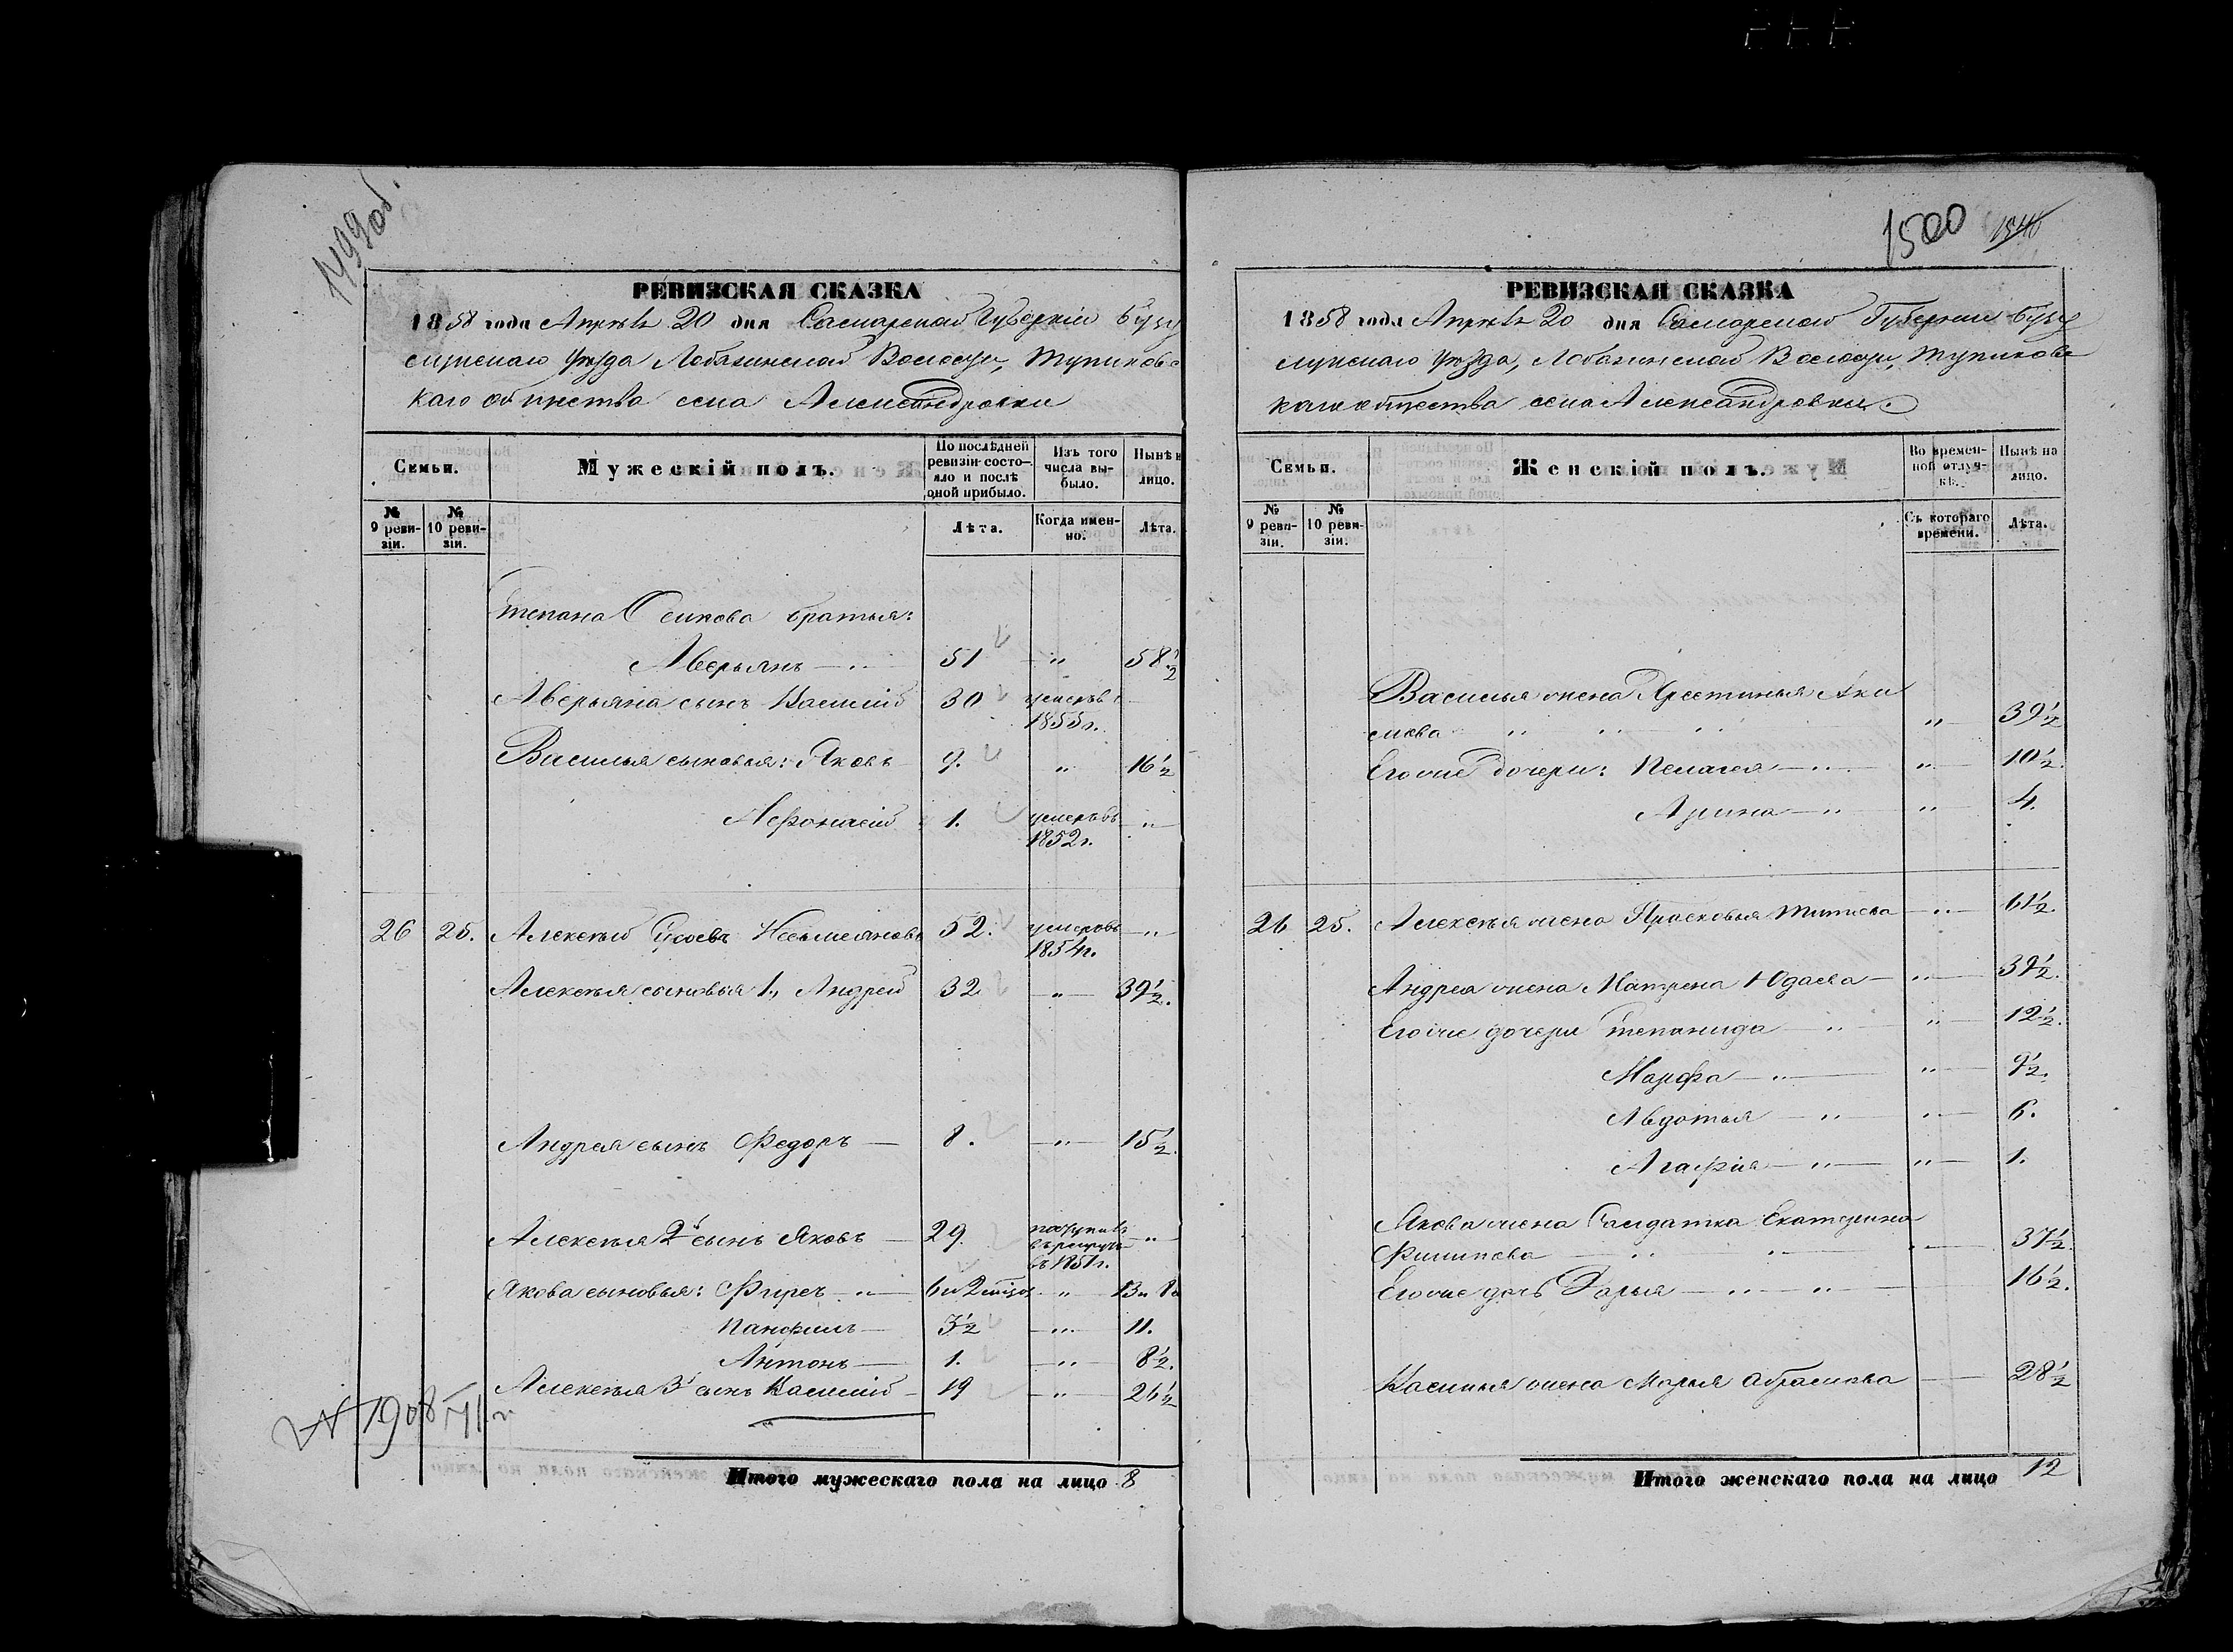 1499об.
РЕВИЗСКАЯ СКАЗКА
1858 года Апрѣля 20 дня Самарской Губерніи Бузу
лукскаго Уѣзда Лобазинской Волости, Тупиковс
каго общества села Александровки
Семьи.
Мужескій полъ.
По послѣдней ревизіи состояло и послѣ оной прибыло.
Изъ того числа выбыло.
Нынѣ н лицо.
№ 9 ревизіи.
№ 10 ревизіи.
Лѣта.
Когда именно.
Лѣта.
Степана Осипова братья:
Аверьянъ 51 " 58½
Аверьяна сынъ Василій 30 умеръ в 1855 г.
Василья сыновья: Яковъ 9. " 16½
Афонасій 1. умеръ въ 1852 г. "
26 25. Алексѣй Гусевъ Несмеяновъ 52. умеръ въ 1854 г. "
Алексѣя сыновья 1й Андрей 32 " 39½.
Андрея сынъ Федоръ 8. " 15½
Алексѣя 2й сынъ Яковъ 29 поступилъ въ рекруты въ 1851 г. "
Якова сыновья: Фирсъ "
Панфилъ 3½ " 11.
Антонъ 1. " 8½.
Алексѣя 3й сынъ Василій 19 " 26½
Итого мужескаго пола на лицо 8
1500
РЕВИЗСКАЯ СКАЗКА
1858 года Апрѣля 20 дня Самарской Губерніи Бузу
лукскаго Уѣзда, Лобазинской Волости, Тупиковс
каго общества села Александровки.
Семьи.
Женскій полъ.
Во временной отлучкѣ.
Нынѣ на лицо.
№ 9 ревизіи.
№ 10 ревизіи.
Съ котораго времени.
Лѣта.
Василья жена Хрестинья Аки
мова " 39½
Его же дочери: Пелагея " 10½.
Арина " 4.
26 25. Алексѣя жена Прасковья Титова " 61½.
Андрея жена Матрена Юдаева " 39½.
Его же дочери Степанида " 12½.
Марфа " 9½.
Авдотья " 6.
Агафія " 1.
Якова жена Солдатка Екатерина
Филипова " 37½.
Его же дочь Дарья " 16½.
Василья жена Марья Абрамова 28½
Итого женскаго пола на лицо 12